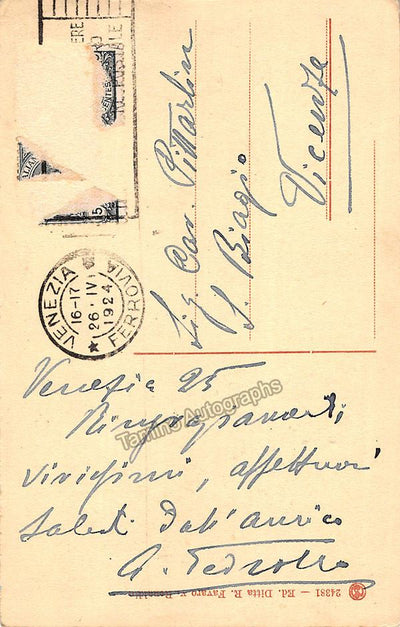 VENEZIA
16-17
26·IV
1924
FERROVIA
Sig. Cav. Pittarlin
S. Biagio
Vicenza
Venezia 25
Ringraziamenti
vivissimi, affettuosi
saluti dall'amico
A. Pedrollo
Tamino Autographs
24381 — Ed. Ditta R. Favaro